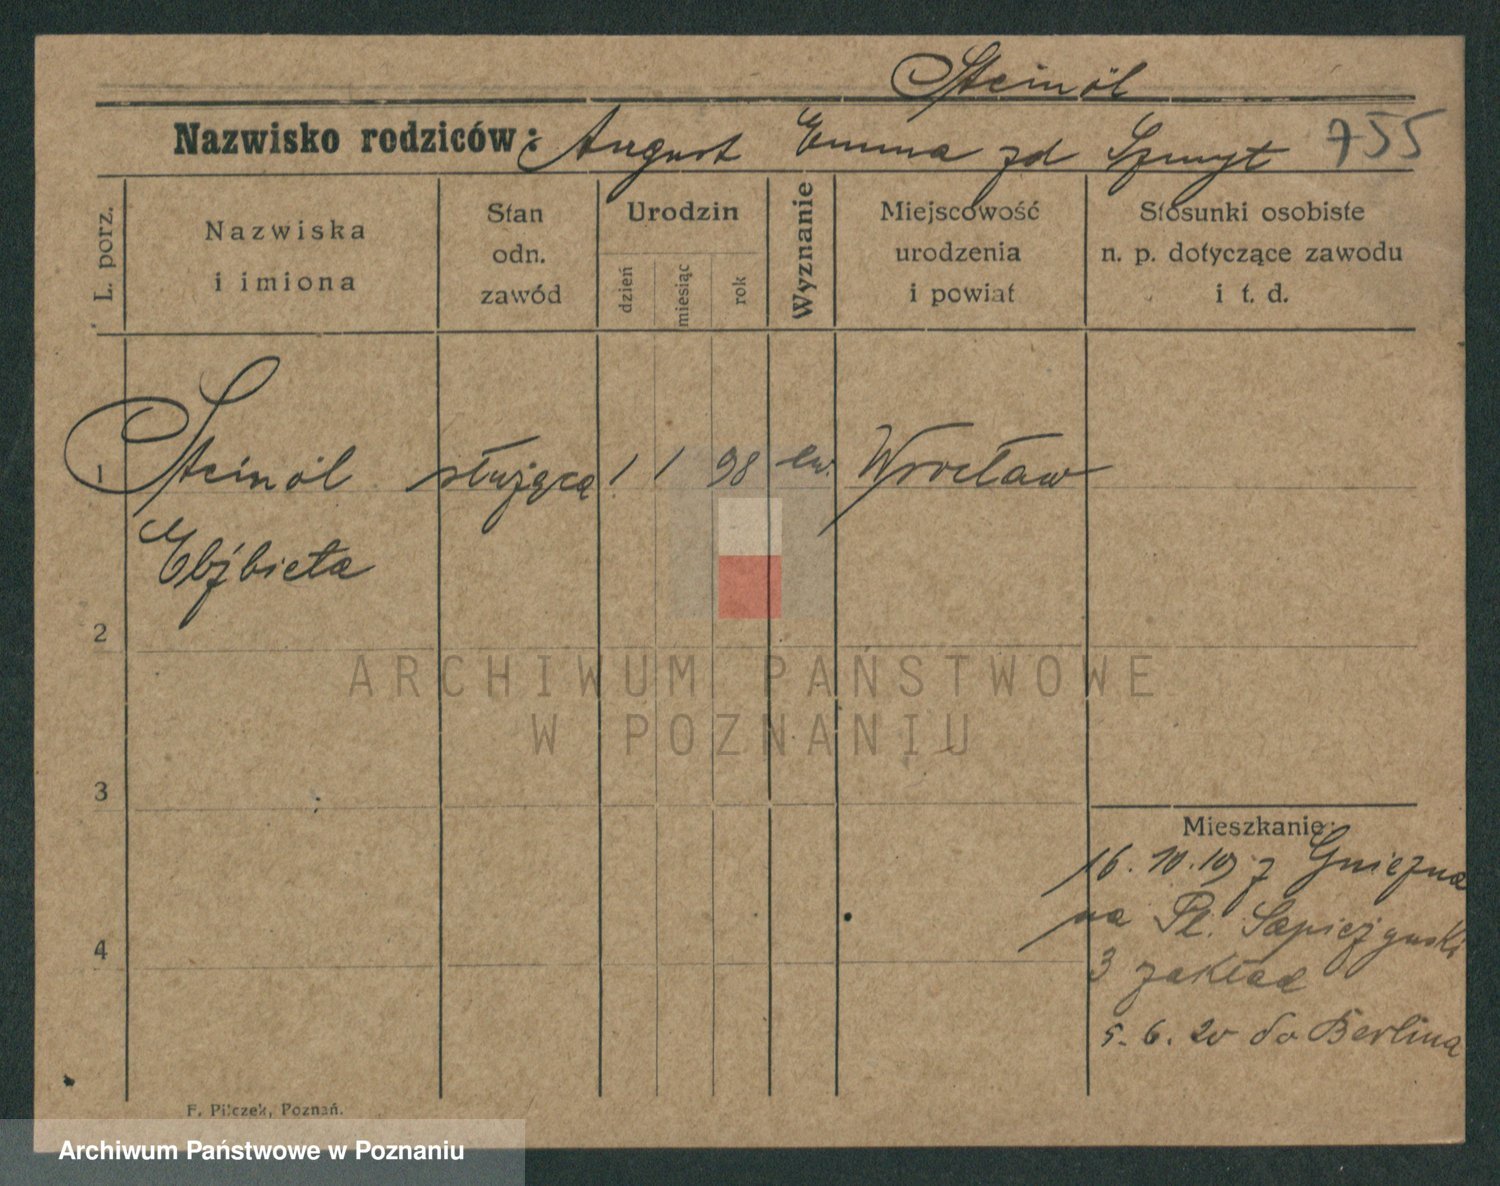 Steinöl
Nazwisko rodziców: August Emma zd Szmyt 755
L. porz.
Nazwiska
i imiona
Stan
odn.
zawód
Urodzin
dzień
miesiąc
rok
Wyznanie
Miejscowość
urodzenia
i powiat
Stosunki osobiste
n. p. dotyczące zawodu
i t. d.
1 Steinöl służąca 1 1 98 ew. Wrocław
Elżbieta
2
ARCHIWUM PAŃSTWOWE
W POZNANIU
3
Mieszkanie:
16.10.19 z Gniezna
na Pl. Sapieżyński
4
3 zakład
5.6.20 do Berlina
F. Pilczek, Poznań.
Archiwum Państwowe w Poznaniu